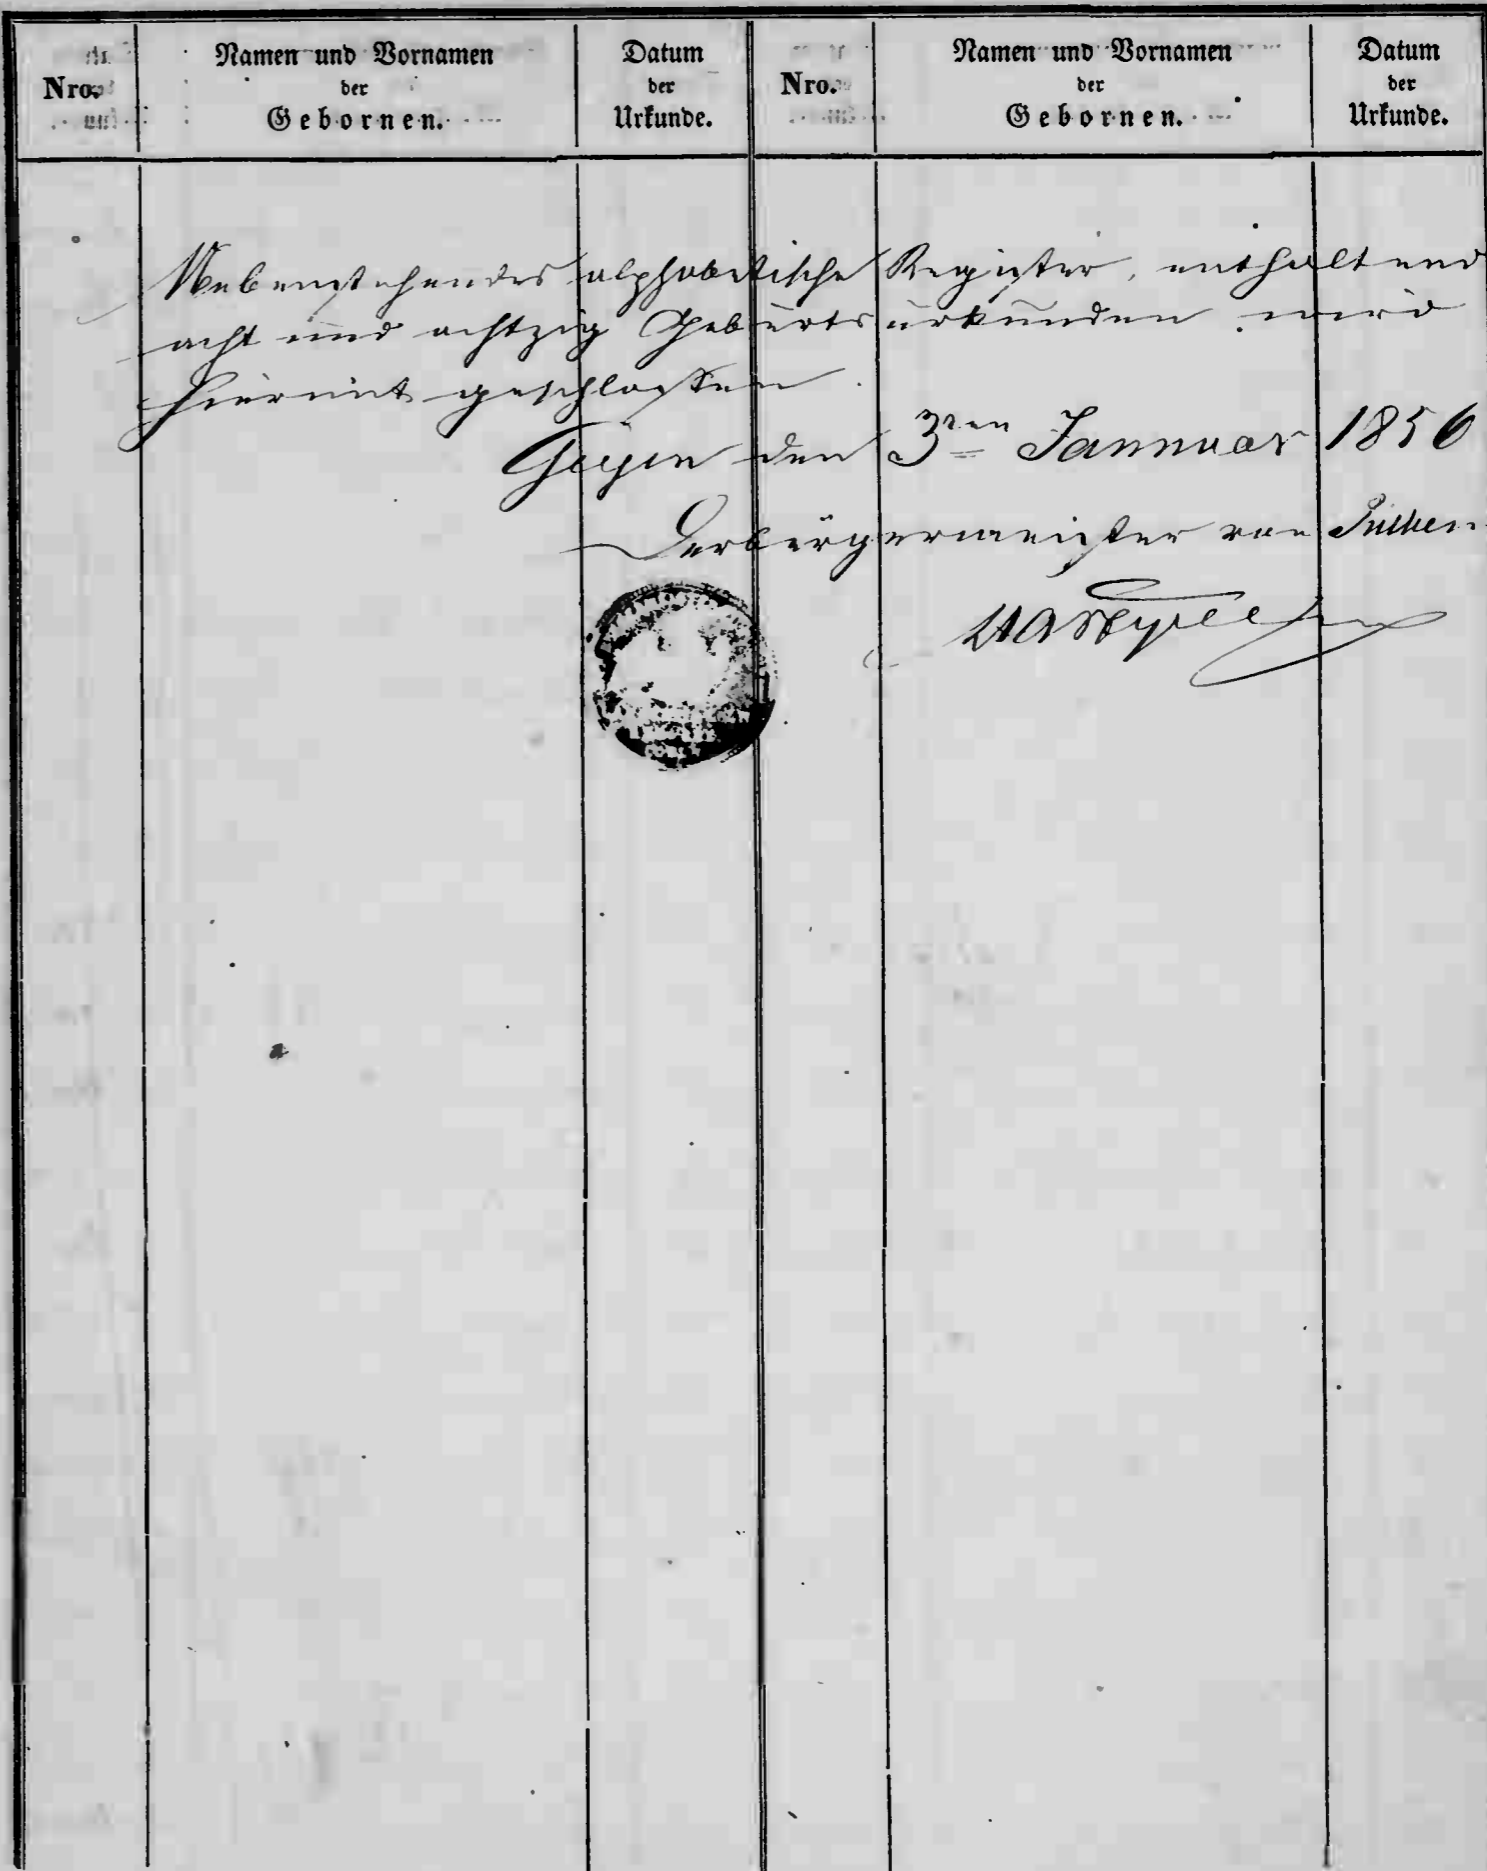 Nro.
Namen und Vornamen
der
Gebornen.
Datum
der
Urkunde.
Nro.
Namen und Vornamen
der
Gebornen.
Datum
der
Urkunde.
Nebenstehendes alphabetische Register, enthaltend
acht und achtzig Geburtsurkunden wird
hiermit geschlossen.
Geyen den 3ten Jannuar 1856
Der Bürgermeister von